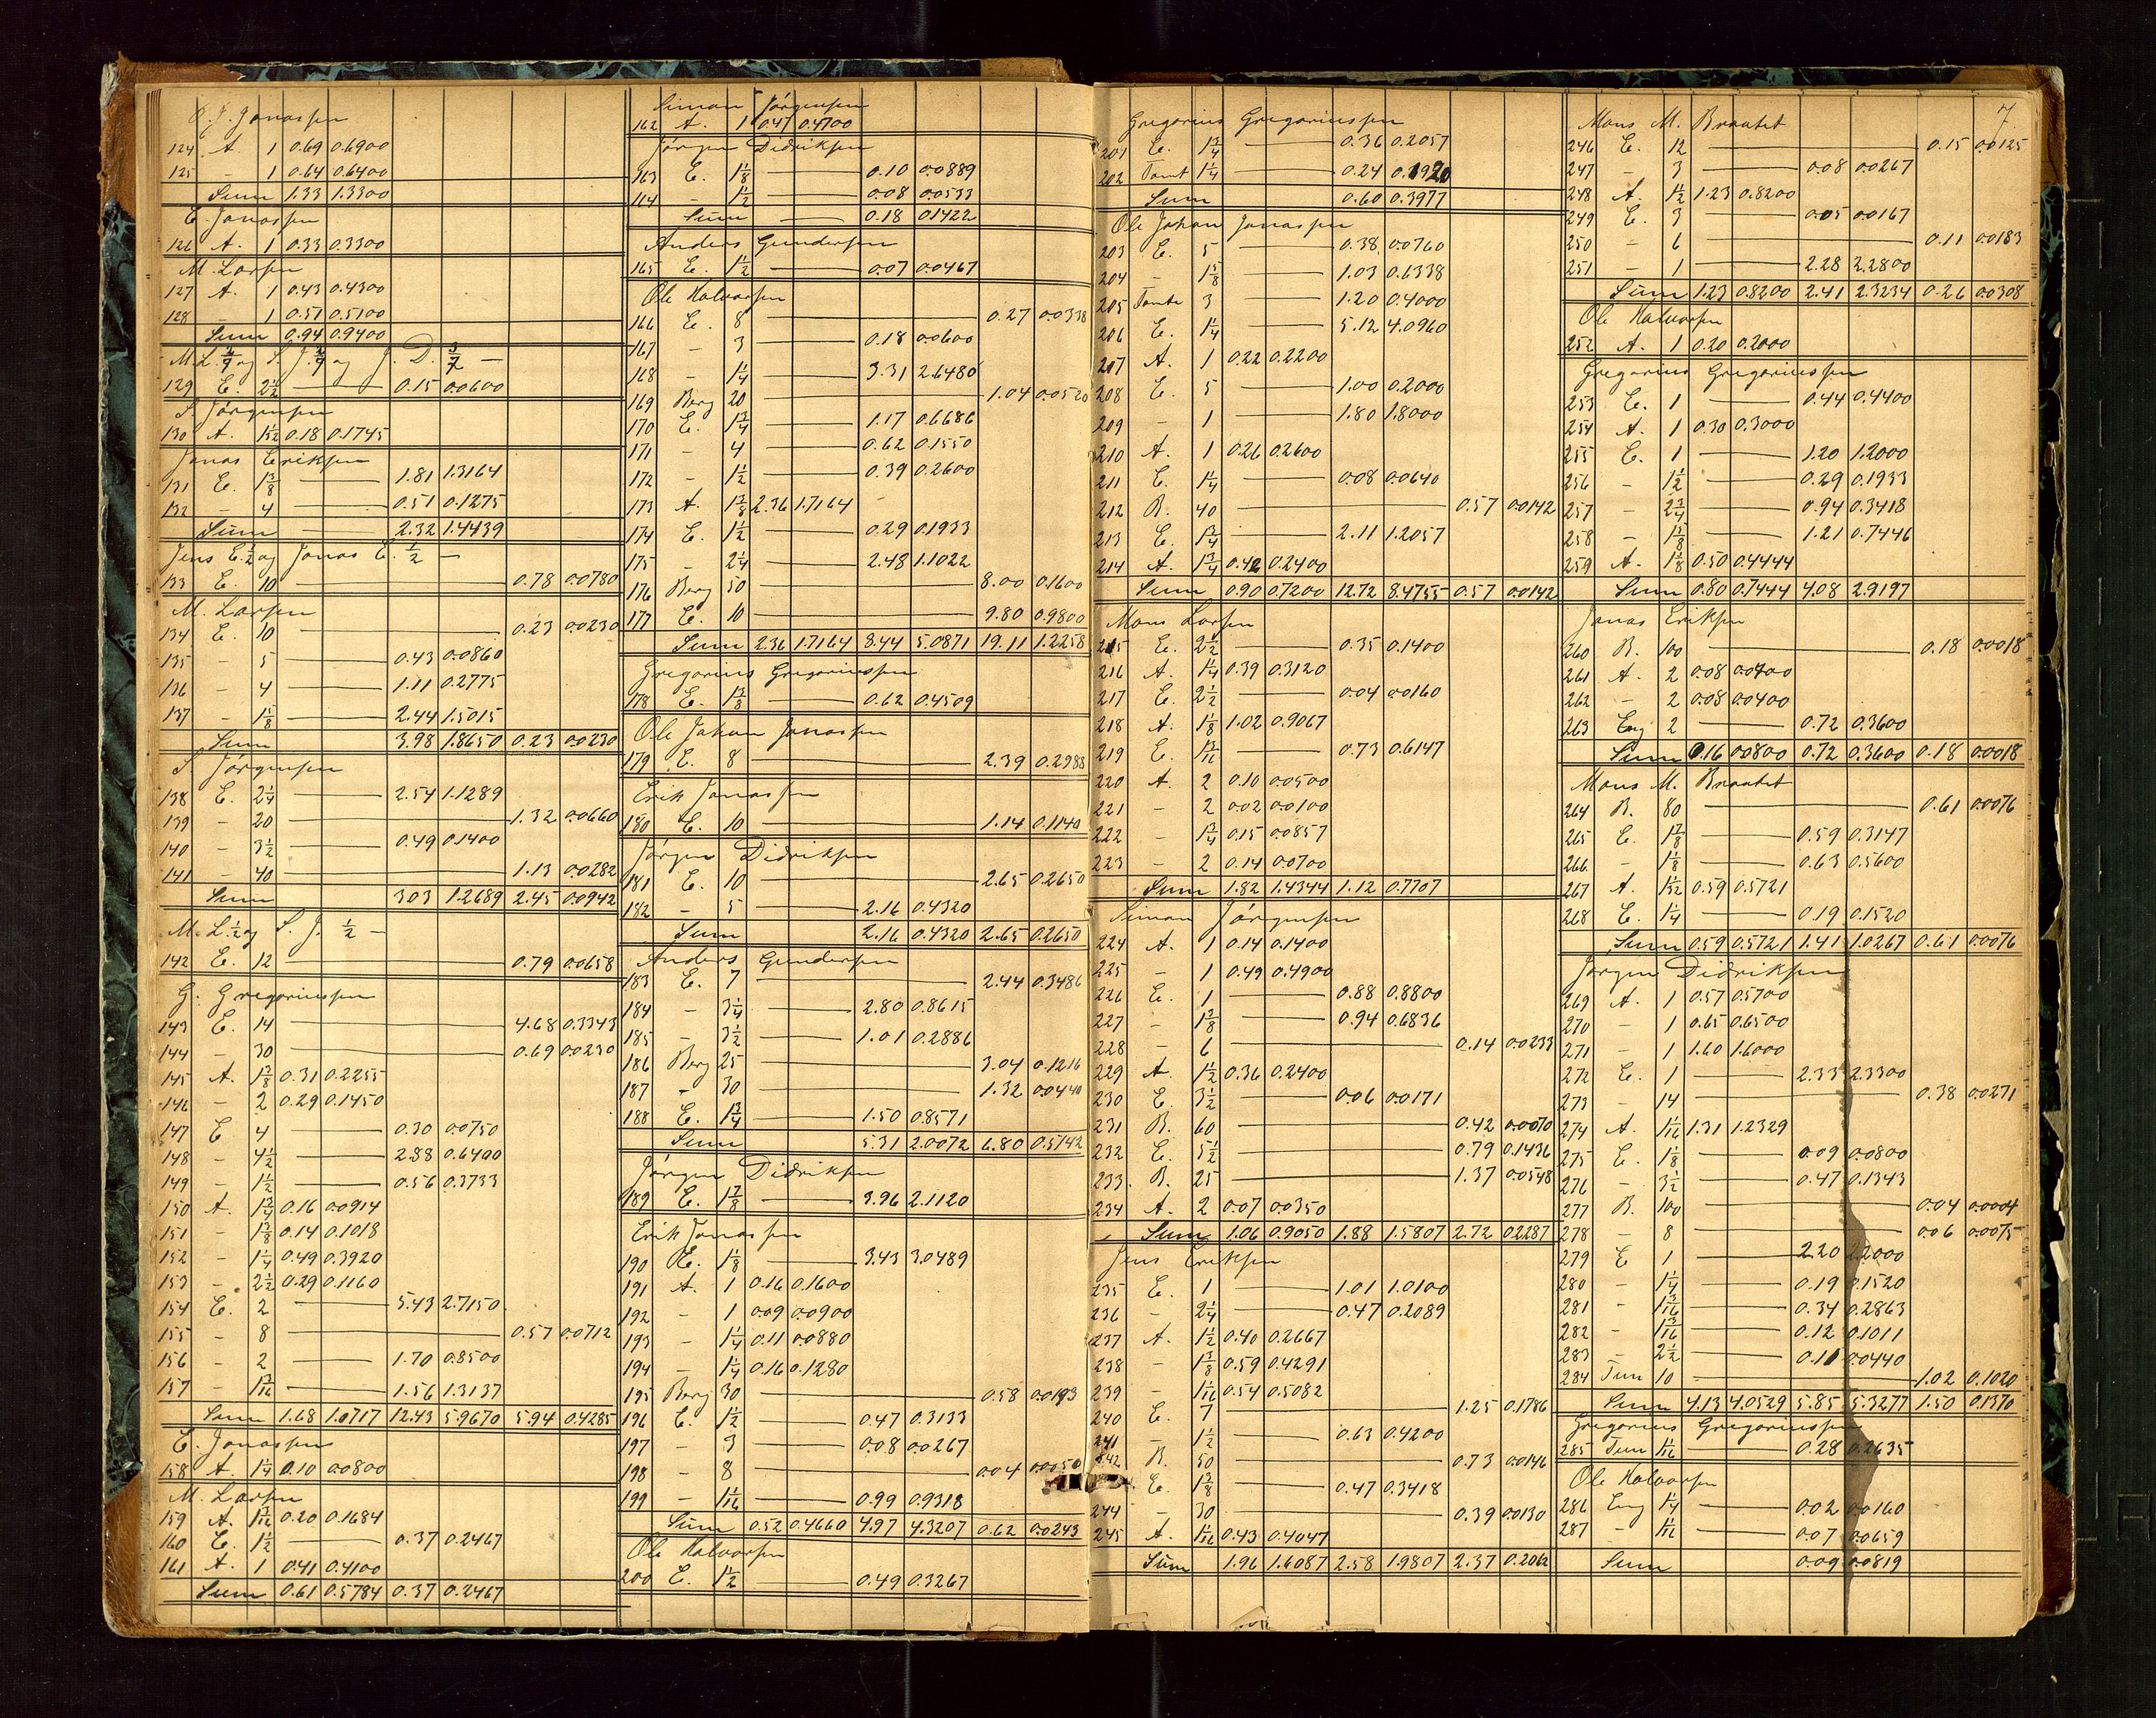 O. J. Jonassen
124 A. 1 0.69 0.6900
125 - 1 0.64 0.6400
Sum 1.33 1.3300
E. Jonassen
126 A. 1 0.33 0.3300
M. Larsen
127 A. 1 0.43 0.4300
128 - 1 0.51 0.5100
Sum 0.94 0.9400
M. L. 2/7 og S. J. 2/7 og J. D. 3/7 —
129 E. 2 1/2 — 0.15 0.0600
S. Jørgensen
130 A. 1 1/32 0.18 0.1745
Jonas Eriksen
131 E. 1 3/8 — 1.81 1.3164
132 - 4 — 0.51 0.1275
Sum — 2.32 1.4439
Jens E. 1/2 og Jonas E. 1/2 —
133 E. 10 — 0.78 0.0780
M. Larsen
134 E. 10 — 0.23 0.0230
135 - 5 — 0.43 0.0860
136 - 4 — 1.11 0.2775
137 - 1 5/8 — 2.44 1.5015
Sum 3.98 1.8650 0.23 0.0230
S. Jørgensen
138 E. 2 1/4 — 2.54 1.1289
139 - 20 — 1.32 0.0660
140 - 3 1/2 — 0.49 0.1400
141 - 40 — 1.13 0.0282
Sum 3.03 1.2689 2.45 0.0942
M. L. 1/2 og S. J. 1/2 —
142 E. 12 — 0.79 0.0658
G. Gregoriussen
143 E. 14 — 4.68 0.3343
144 - 30 — 0.69 0.0230
145 A. 1 3/8 0.31 0.2255
146 - 2 0.29 0.1450
147 E 4 — 0.30 0.0750
148 - 4 1/2 — 2.88 0.6400
149 - 1 1/2 — 0.56 0.3733
150 A. 1 3/4 0.16 0.0914
151 - 1 3/8 0.14 0.1018
152 - 1 1/4 0.49 0.3920
153 - 2 1/2 0.29 0.1160
154 E. 2 — 5.43 2.7150
155 - 8 — 0.57 0.0712
156 - 2 — 1.70 0.8500
157 - 1 3/16 — 1.56 1.3137
Sum 1.68 1.0717 12.43 5.9670 5.94 0.4285
E. Jonassen
158 A. 1 1/4 0.10 0.0800
M. Larsen
159 A. 1 3/16 0.20 0.1684
160 E. 1 1/2 — 0.37 0.2467
161 A. 1 0.41 0.4100
Sum 0.61 0.5784 0.37 0.2467
Simon Jørgensen
162 A. 1 0.47 0.4700
Jørgen Didriksen
163 E. 1 1/8 — 0.10 0.0889
164 - 1 1/2 — 0.08 0.0533
Sum — 0.18 0.1422
Anders Gundersen
165 E. 1 1/2 — 0.07 0.0467
Ole Halvorsen
166 E. 8 — 0.27 0.0338
167 - 3 — 0.18 0.0600
168 - 1 1/4 — 3.31 2.6480
169 Berg 20 — 1.04 0.0520
170 E. 1 3/4 — 1.17 0.6686
171 - 4 — 0.62 0.1550
172 - 1 1/2 — 0.39 0.2600
173 A. 1 3/8 2.36 1.7164 -
174 E. 1 1/2 — 0.29 0.1933
175 - 2 1/4 — 2.48 1.1022
176 Berg 50 — 8.00 0.1600
177 E. 10 — 9.80 0.9800
Sum 2.36 1.7164 8.44 5.0871 19.11 1.2258
Gregorius Gregoriussen
178 E. 1 3/8 — 0.62 0.4509
Ole Johan Jonassen
179 E. 8 — 2.39 0.2988
Erik Jonassen
180 E. 10 — 1.14 0.1140
Jørgen Didriksen
181 E. 10 — 2.65 0.2650
182 - 5 — 2.16 0.4320
Sum 2.16 0.4320 2.65 0.2650
Anders Gundersen
183 E. 7 — 2.44 0.3486
184 - 3 1/4 — 2.80 0.8615
185 - 3 1/2 — 1.01 0.2886
186 Berg 25 — 3.04 0.1216
187 - 30 — 1.32 0.0440
188 E. 1 3/4 — 1.50 0.8571
Sum 5.31 2.0072 6.80 0.5142
Jørgen Didriksen
189 E. 1 7/8 — 3.96 2.1120
Erik Jonassen
190 E. 1 1/8 — 3.43 3.0489
191 A. 1 0.16 0.1600
192 - 1 0.09 0.0900
193 - 1 1/4 0.11 0.0880
194 - 1 1/4 0.16 0.1280
195 Berg 30 — 0.58 0.0193
196 E. 1 1/2 — 0.47 0.3133
197 - 3 — 0.08 0.0267
198 - 8 — 0.04 0.0050
199 - 1 1/16 — 0.99 0.9318
Sum 0.52 0.4660 4.97 4.3207 0.62 0.0243
Ole Halvorsen
200 E. 1 1/2 0.49 0.3267
7
Gregorius Gregoriussen
201 E. 1 3/4 — 0.36 0.2057
202 Tomt 1 1/4 — 0.24 0.1920
Sum 0.60 0.3977
Ole Johan Jonassen
203 E. 5 — 0.38 0.0760
204 - 1 5/8 — 1.03 0.6338
205 Tomte 3 — 1.20 0.4000
206 E. 1 1/4 — 5.12 4.0960
207 A. 1 0.22 0.2200
208 E. 5 — 1.00 0.2000
209 - 1 — 1.80 1.8000
210 A. 1 0.26 0.2600
211 E. 1 1/4 — 0.08 0.0640
212 B. 40 — 0.57 0.0142
213 E. 1 3/4 — 2.11 1.2057
214 A. 1 3/4 0.42 0.2400
Sum 0.90 0.7200 12.72 8.4755 0.57 0.0142
Mons Larsen
215 E. 2 1/2 — 0.35 0.1400
216 A. 1 1/4 0.39 0.3120
217 E. 2 1/2 — 0.04 0.0160
218 A. 1 1/8 1.02 0.9067
219 E. 1 3/16 — 0.73 0.6147
220 A. 2 0.10 0.0500
221 - 2 0.02 0.0100
222 - 1 3/4 0.15 0.0857
223 - 2 0.14 0.0700
Sum 1.82 1.4344 1.12 0.7707
Simon Jørgensen
224 A. 1 0.14 0.1400
225 - 1 0.49 0.4900
226 E. 1 — 0.88 0.8800
227 - 1 3/8 — 0.94 0.6836
228 - 6 — 0.14 0.0233
229 A. 1 1/2 0.36 0.2400
230 E. 3 1/2 — 0.06 0.0171
231 B. 60 — 0.42 0.0070
232 E. 5 1/2 — 0.79 0.1436
233. B. 25 — 1.37 0.0548
234 A. 2 0.07 0.0350
Sum 1.06 0.9050 1.88 1.5807 2.72 0.2287
Jens Eriksen
235 E. 1 — 1.01 1.0100
236 - 2 1/4 — 0.47 0.2089
237 A. 1 1/2 0.40 0.2667
238 - 1 3/8 0.59 0.4291
239 - 1 1/16 0.54 0.5082
240 E. 7 — 1.25 0.1786
241 - 1 1/2 — 0.63 0.4200
242 B. 50 — 0.73 0.0146
E. 1 3/8 — 0.47 0.3418
244 - 30 — 0.39 0.0130
245 A. 1 1/16 0.43 0.4047
Sum 1.96 1.6087 2.58 1.9807 2.37 0.2062
Mons M. Braatet
246 E. 12 — 0.15 0.0125
247 - 3 — 0.08 0.0267
248 A. 1 1/2 1.23 0.8200
249 E. 3 — 0.05 0.0167
250 - 6 — 0.11 0.0183
251 - 1 — 2.28 2.2800
Sum 1.23 0.8200 2.41 2.3234 0.26 0.0308
Ole Halvorsen
252 A. 1 0.20 0.2000
Gregorius Gregoriussen
253 E. 1 — 0.44 0.4400
254 A. 1 0.30 0.3000
255 E. 1 — 1.20 1.2000
256 - 1 1/2 — 0.29 0.1933
257 - 2 3/4 — 0.94 0.3418
258 - 1 5/8 — 1.21 0.7446
259 A. 1 1/8 0.50 0.4444
Sum 0.80 0.7444 4.08 2.9197
Jonas Eriksen
260 B. 100 — 0.18 0.0018
261 A. 2 0.08 0.0400
262 - 2 0.08 0.0400
263 Eng 2 — 0.72 0.3600
Sum 0.16 0.0800 0.72 0.3600 0.18 0.0018
Mons M. Braatet
264 B. 80 — 0.61 0.0076
265 E. 1 7/8 — 0.59 0.3147
266 - 1 1/8 — 0.63 0.5600
267 A. 1 1/32 0.59 0.5721
268 E. 1 1/4 — 0.19 0.1520
Sum 0.59 0.5721 1.41 1.0267 0.61 0.0076
Jørgen Didriksen
269 A. 1 0.57 0.5700
270 - 1 0.65 0.6500
271 - 1 1.60 1.6000
272 E. 1 — 2.33 2.3300
273 - 14 — 0.38 0.0271
274 A. 1 1/16 1.31 1.2329
275 E. 1 1/8 — 0.09 0.0800
276 - 3 1/2 — 0.47 0.1343
277 B. 100 — 0.04 0.0004
278 - 8 — 0.06 0.0075
279 E 1 — 2.20 2.2000
280 - 1 1/4 — 0.19 0.1520
281 - 1 3/16 — 0.34 0.2863
282 - 1 3/16 — 0.12 0.1011
283 - 2 1/2 — 0.11 0.0440
284 Tun 10 — 1.02 0.1020
Sum 4.13 4.0529 5.85 5.3277 1.50 0.1370
Gregorius Gregoriussen
285 Tun 1 1/16 — 0.28 0.2635
Ole Halvorsen
286 Eng 1 1/4 — 0.02 0.0160
287 - 1 1/16 — 0.07 0.0659
Sum 0.09 0.0819